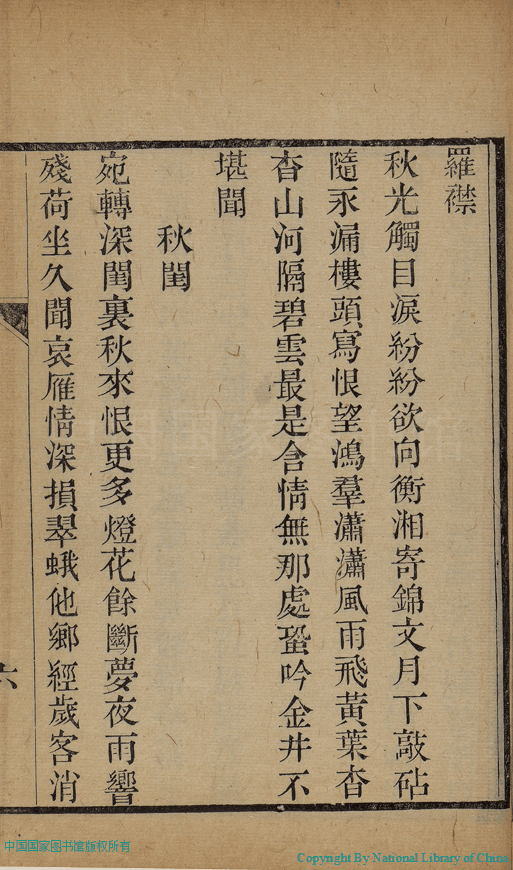 羅襟
秋光觸目淚紛紛欲向衡湘寄錦文月下敲砧
隨永漏樓頭寫恨望鴻羣瀟瀟風雨飛黃葉杳
杳山河隔碧雲最是含情無那處蛩吟金井不
堪聞
秋閨
宛轉深閨裏秋來恨更多燈花餘斷夢夜雨響
殘荷坐久聞哀雁情深損翠蛾他鄉經歲客消
六
中国国家图书馆版权所有
Copyright By National Library of China